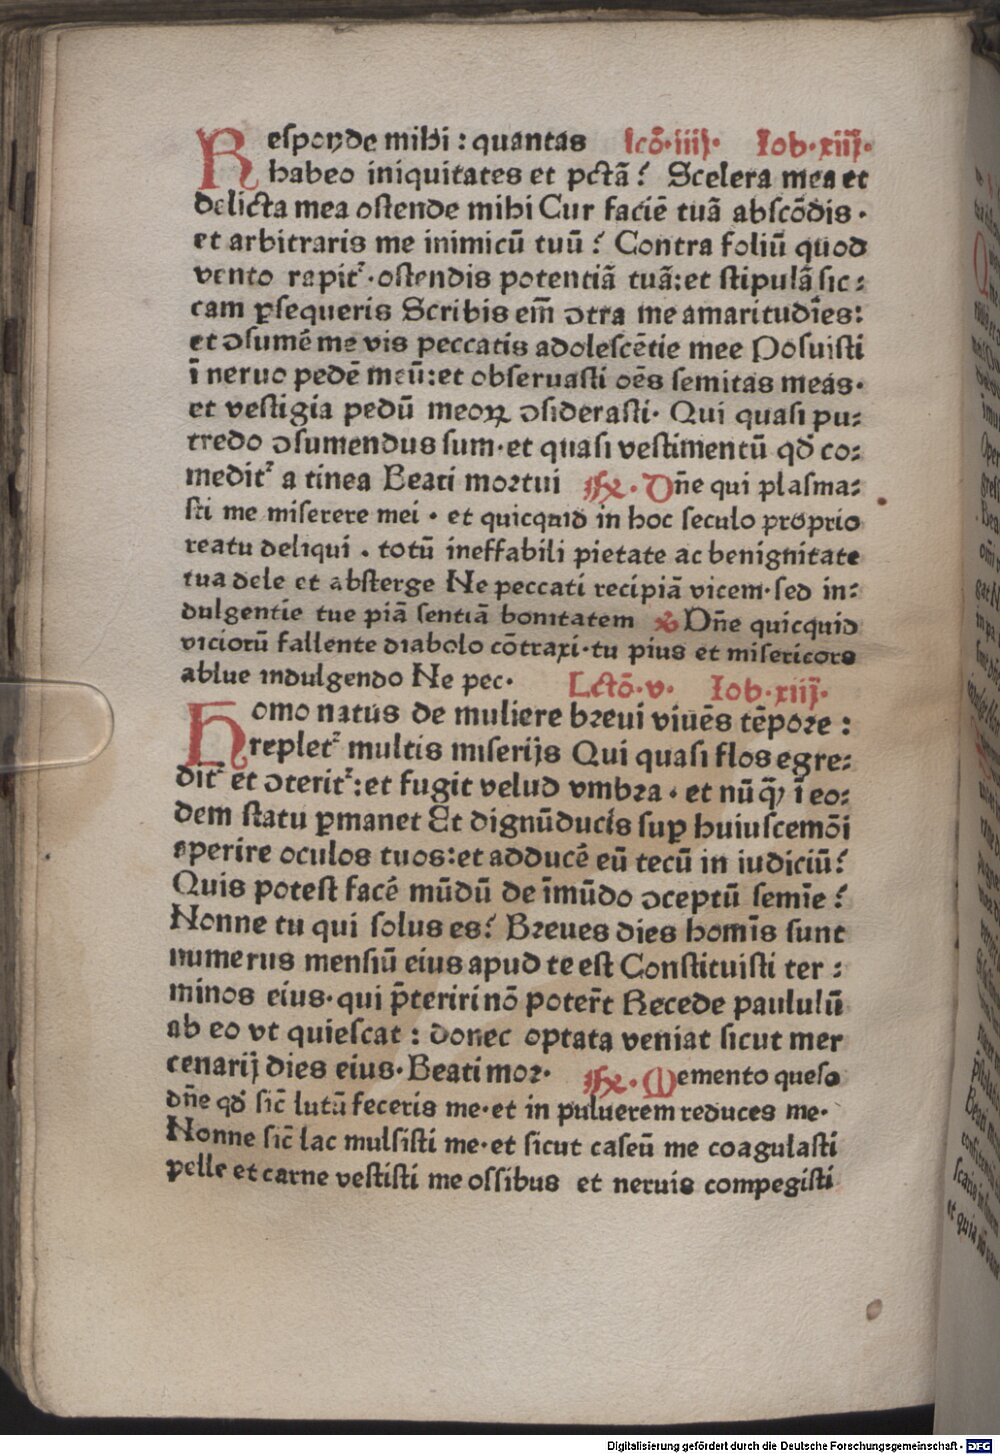 Responde mihi : quantas Lcō·iiij· Iob·xiij·
habeo iniquitates et pctā? Scelera mea et
delicta mea ostende mihi Cur faciē tuā abscōdis·
et arbitraris me inimicū tuū? Contra foliū quod
vento rapit᷑·ostendis potentiā tuā:et stipulā sic:
cam ꝑsequeris Scribis em̄ ↄtra me amaritudīes:
et ↄsumē me vis peccatis adolescētie mee Posuisti
ī neruo pedē meū:et obseruasti oēs semitas meas·
et vestigia pedū meoꝝ ↄsiderasti· Qui quasi pu:
tredo ↄsumendus sum·et quasi vestimentū qđ co:
medit᷑ a tinea Beati mortui ℟· Dn̄e qui plasma:
sti me miserere mei · et quicquid in hoc seculo proprio
reatu deliqui · totū ineffabili pietate ac benignitate
tua dele et absterge Ne peccati recipiā vicem·sed in:
dulgentie tue piā sentiā bonitatem ℣ Dn̄e quicquid
viciorū fallente diabolo cōtraxi·tu pius et misericors
ablue indulgendo Ne pec· Lctō·v· Iob·xiiij·
Homo natus de muliere breui viuēs tēpore :
replet᷑ multis miserijs Qui quasi flos egre:
dit᷑ et ↄterit᷑:et fugit velud vmbra · et nūq̄ȝ ī eo:
dem statu ꝑmanet Et dignū ducis suꝑ huiuscemōi
aperire oculos tuos:et adducē eū tecū in iudiciū?
Quis potest facē mūdū de īmūdo ↄceptū semīe?
Nonne tu qui solus es? Breues dies homīs sunt
numerus mensiū eius apud te est Constituisti ter :
minos eius·qui p̄teriri nō poter̄t Recede paululū
ab eo vt quiescat : donec optata veniat sicut mer
cenarij dies eius·Beati mor· ℟· Memento queso
dn̄e qđ sic̄ lutū feceris me·et in puluerem reduces me·
Nonne sic̄ lac mulsisti me·et sicut caseū me coagulasti
pelle et carne vestisti me ossibus et neruis compegisti
Digitalisierung gefördert durch die Deutsche Forschungsgemeinschaft - DFG